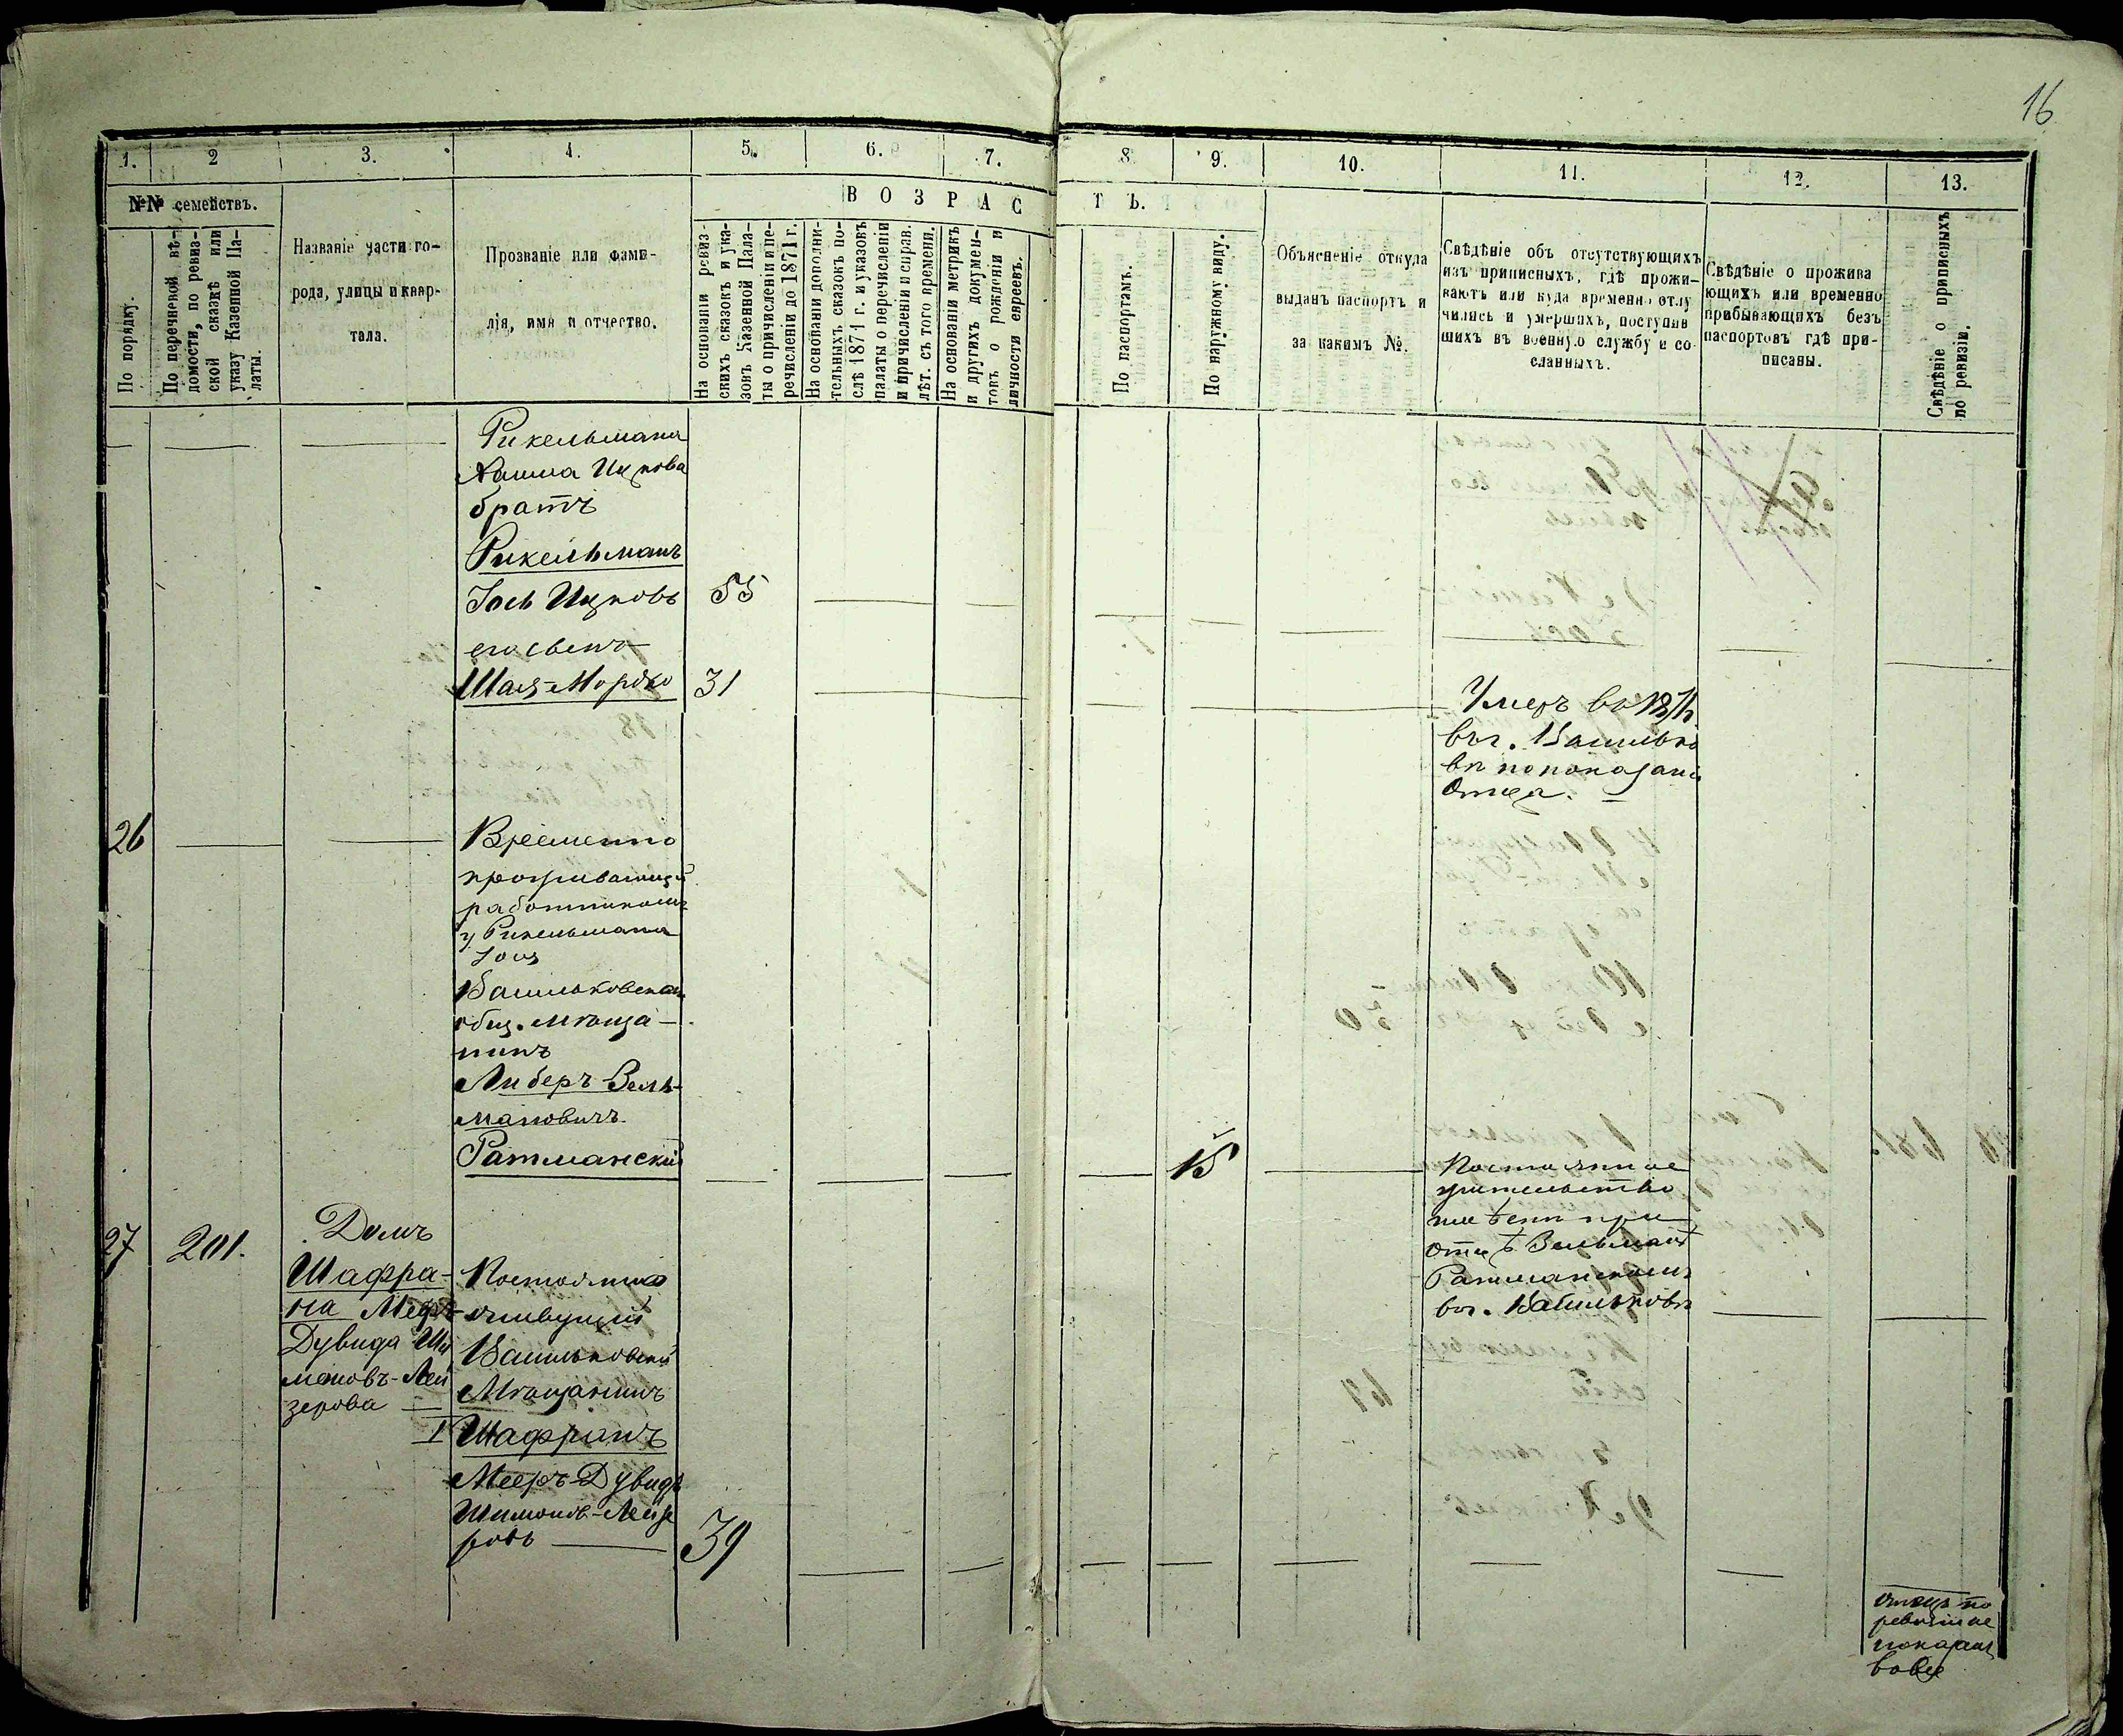 16
1. 2 3. 4. 5. 6. 7. 8 9. 10. 11. 12. 13.
№№ семействъ.
По порядку.
По перечневой вѣ-
домости, по ревиз-
ской сказкѣ или
указу Казенной Па-
латы.
Названіе части го-
рода, улицы и квар-
тала.
Прозваніе или фами-
лія, имя и отчество.
ВОЗРАСТЪ.
На основаніи ревиз-
скихъ сказокъ и ука-
зовъ Казенной Пала-
ты о причисленіи и пе-
речисленіи до 1871 г.
На основаніи дополни-
тельныхъ сказокъ по-
слѣ 1871 г. и указовъ
палаты о перечисленіи
и причисленіи и справ.
лѣт. съ того времени.
На основаніи метрикъ
и другихъ докумен-
товъ о рожденіи и
личности евреевъ.
По паспортамъ.
По наружному виду.
Объясненіе откуда
выданъ паспортъ и
за какимъ №.
Свѣдѣніе объ отсутствующихъ
изъ приписныхъ, гдѣ прожи-
ваютъ или куда временно отлу
чились и умершихъ, поступив
шихъ въ военную службу и со
сланныхъ.
Свѣдѣніе о прожива
ющихъ или временно
прибывающихъ безъ
паспортовъ гдѣ при-
писаны.
Свѣдѣніе о приписныхъ
по ревизіи.
Рикельмана
Ицкова
братъ
Рикельманъ
Іось Ицковъ 55
его сынъ
Шая-Мордко 31
Умеръ въ
въ г. Василько
вѣ по показанію
Отца.
26
Временно
проживающій
работникомъ
у Рикельмана
Іося
Васильковскій
общ. мѣща-
нинъ
Либеръ Зель-
мановичъ
Ратманскій
15
Постоянное
жительство
имѣетъ при
отцѣ Зельманѣ
Ратманскомъ
въ г. Васильковѣ
27 201.
Домъ
Шафра-
на Меера-
Дувида Ши
моновъ-Лей
зерова
Постоянно
живущій
Васильковскій
Мѣщанинъ
1 Шафранъ
Мееръ-Дувидъ
Шимонов-Лейзе
ровъ 39
по
ревизіи не
показанъ
вовсе